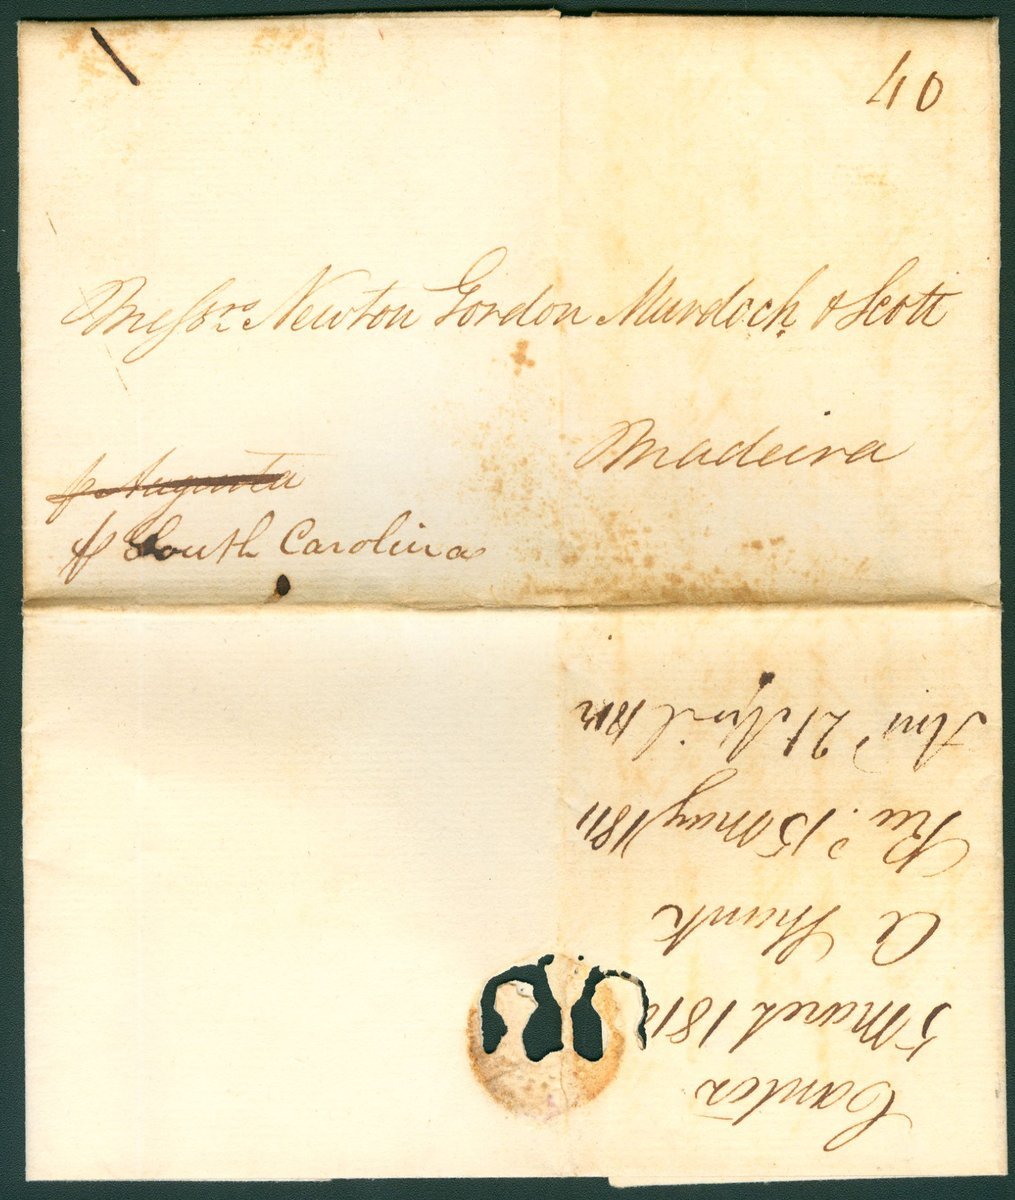 40
Messrs. Newton Gordon Murdoch & Scott
Madeira
p Augusta
p South Carolina
Canton
5 March 181
A Shank
Rec. 15 May 1811
Ans. 21 April 1812